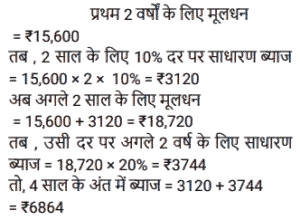 प्रथम 2 वर्षों के लिए मूलधन
= ₹15,600
तब , 2 साल के लिए 10% दर पर साधारण ब्याज
= 15,600 × 2 × 10% = ₹3120
अब अगले 2 साल के लिए मूलधन
= 15,600 + 3120 = ₹18,720
तब , उसी दर पर अगले 2 वर्ष के लिए साधारण
ब्याज = 18,720 × 20% = ₹3744
तो, 4 साल के अंत में ब्याज = 3120 + 3744
= ₹6864